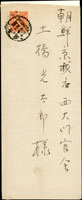 朝鮮京城府西大門官舎
土橋光太郎様